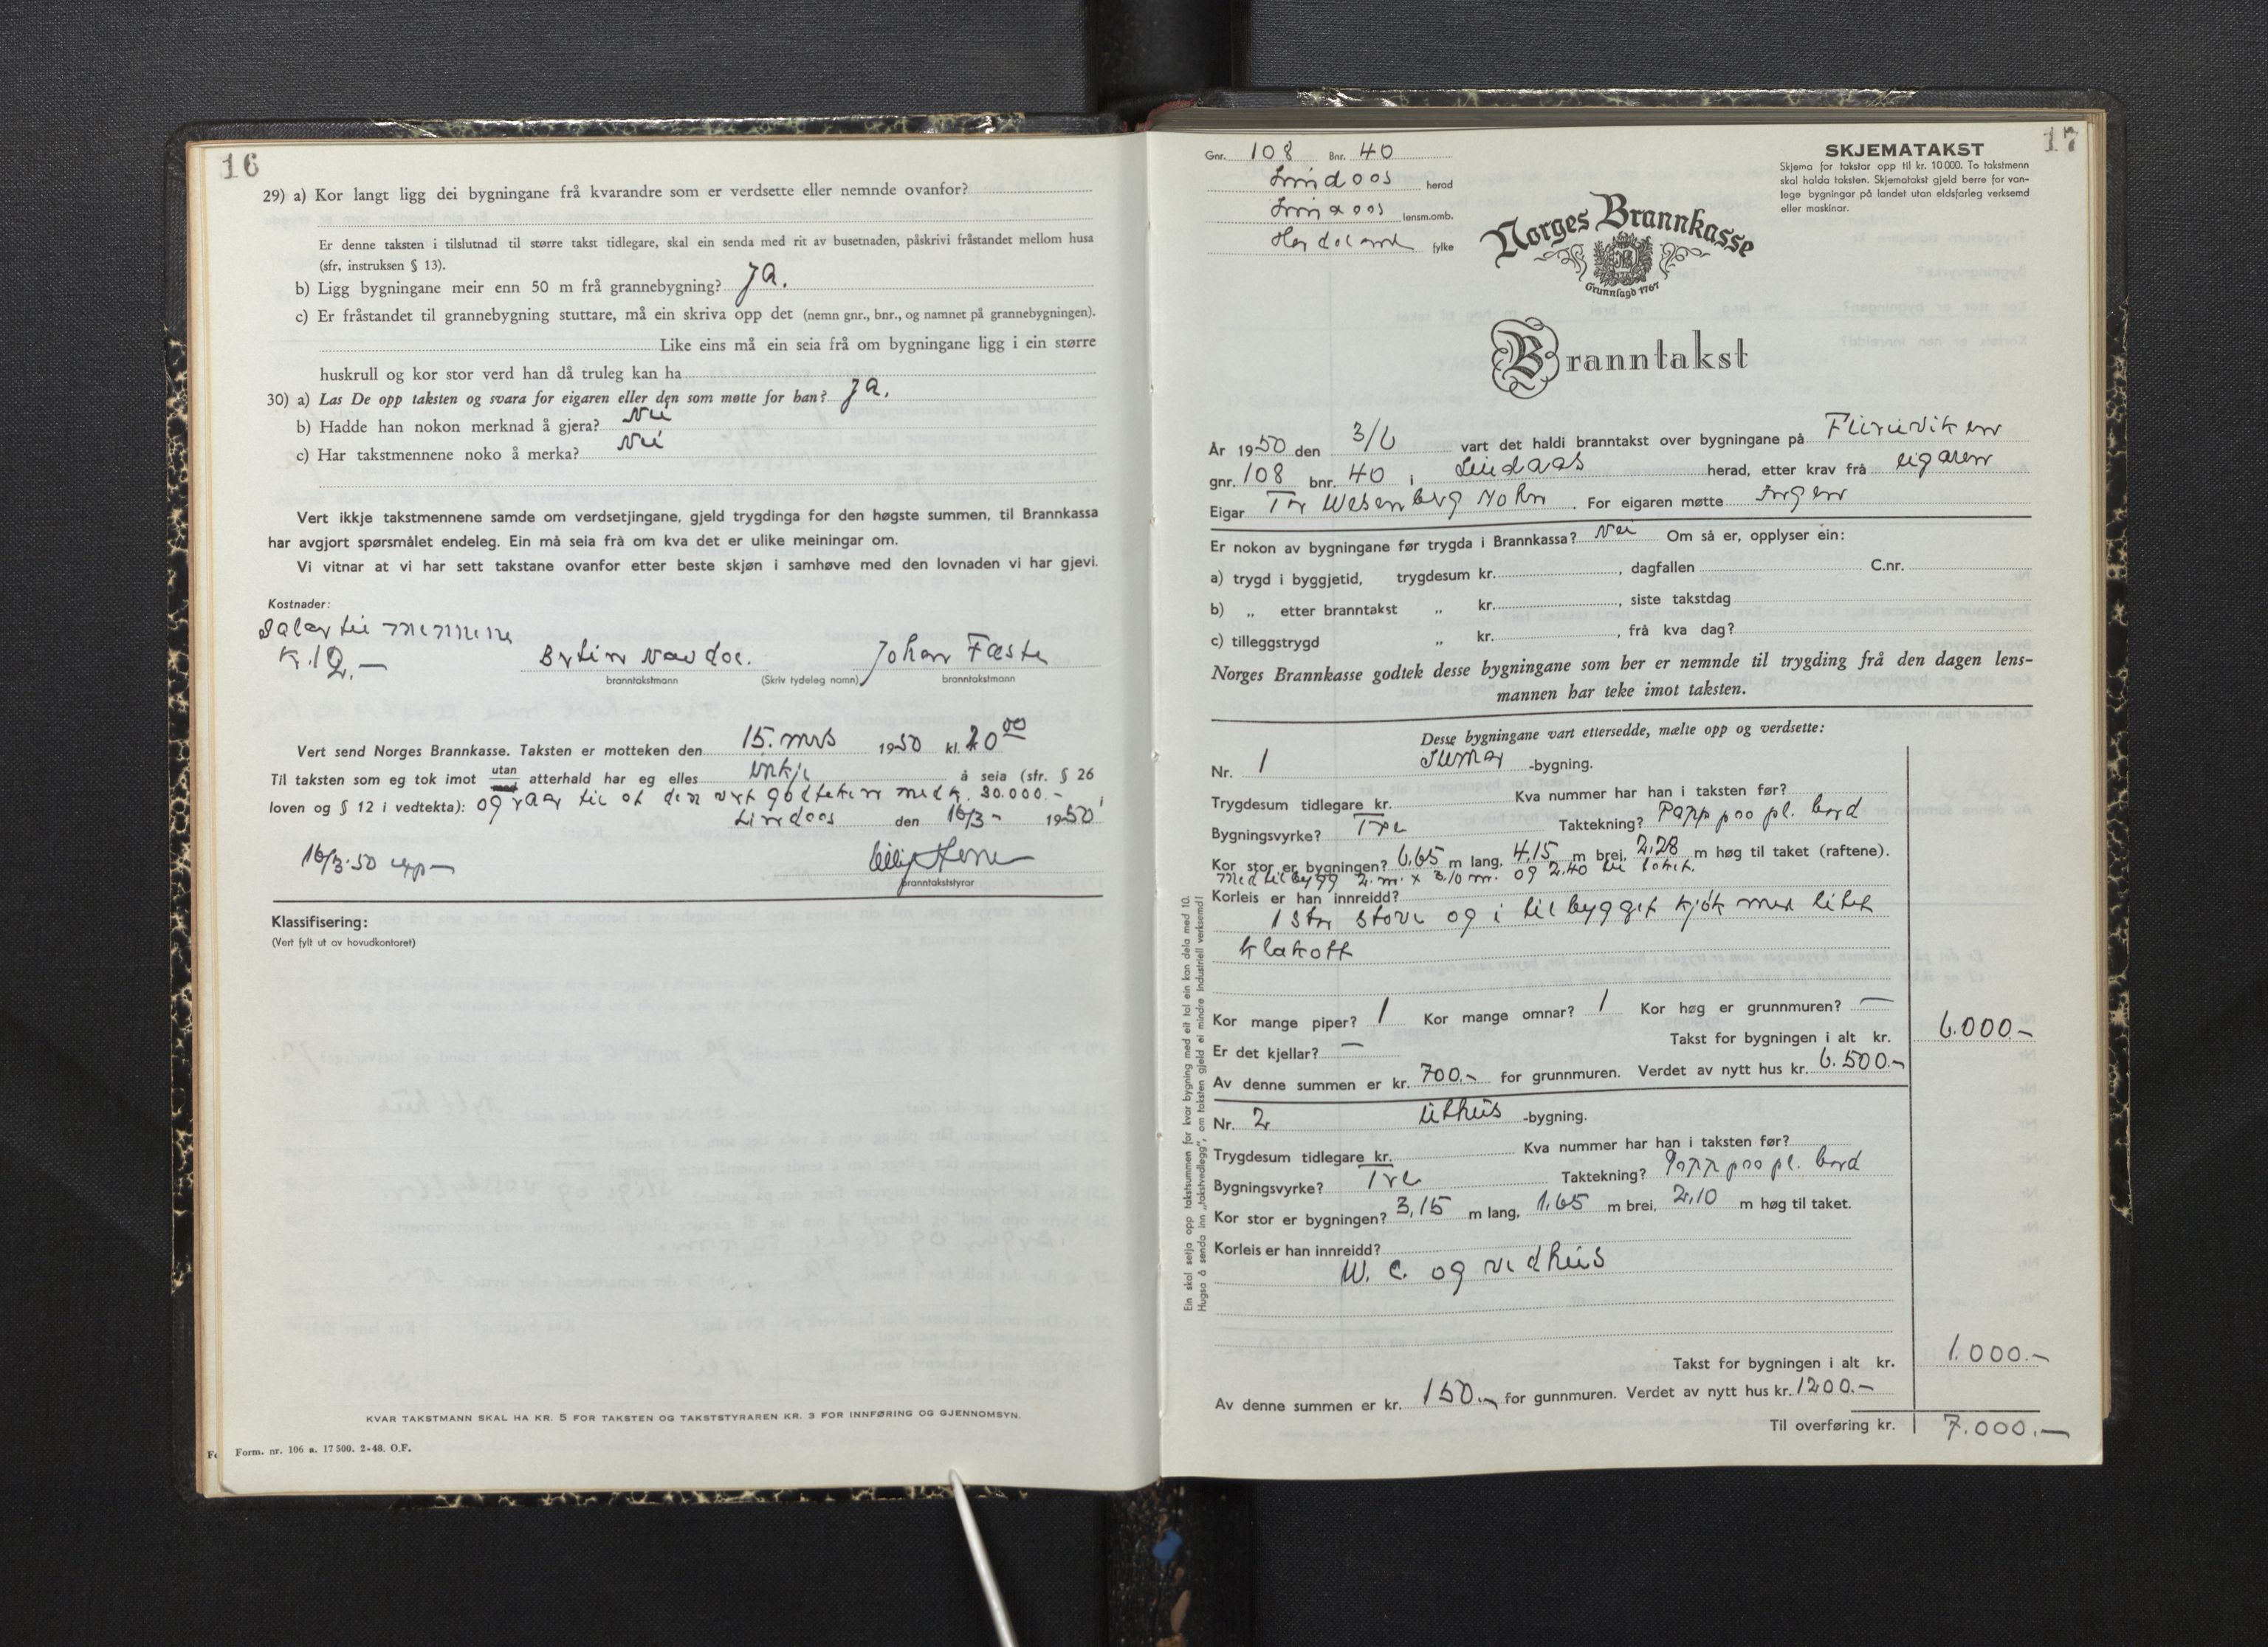 16
29) a) Kor langt ligg dei bygningane frå kvarandre som er verdsette eller nemnde ovanfor?
Er denne taksten i tilslutnad til større takst tidlegare, skal ein senda med rit av busetnaden, påskrivi fråstandet mellom husa
(sfr, instruksen § 13).
b) Ligg bygningane meir enn 50 m frå grannebygning? ja.
c) Er fråstandet til grannebygning stuttare, må ein skriva opp det (nemn gnr., bnr., og namnet på grannebygningen).
Like eins må ein seia frå om bygningane ligg i ein større
huskrull og kor stor verd han då truleg kan ha
30) a) Las De opp taksten og svara for eigaren eller den som møtte for han? ja.
b) Hadde han nokon merknad å gjera? Nei
c) Har takstmennene noko å merka? Nei
Vert ikkje takstmennene samde om verdsetjingane, gjeld trygdinga for den høgste summen, til Brannkassa
har avgjort spørsmålet endeleg. Ein må seia frå om kva det er ulike meiningar om.
Vi vitnar at vi har sett takstane ovanfor etter beste skjøn i samhøve med den lovnaden vi har gjevi.
Kostnader:
Salær til mennene
K. 12.—
Johan Fæste
branntakstmann (Skriv tydeleg namn) branntakstmann
Vert send Norges Brannkasse. Taksten er motteken den 15. mrs 1950 kl. 20 00
Til taksten som eg tok imot utan med atterhald har eg elles inkje å seia (sfr. § 26
loven og § 12 i vedtekta): og raar til at den vert godteken med k. 30.000.-
Lindaas den 16/3- 1950
16/3-50
branntakststyrar
Klassifisering:
(Vert fylt ut av hovudkontoret)
KVAR TAKSTMANN SKAL HA KR. 5 FOR TAKSTEN OG TAKSTSTYRAREN KR. 3 FOR INNFØRING OG GJENNOMSYN.
Form. nr. 106 a. 17 500. 2-48. O.F.
17
Gnr. 108 Bnr. 40
Lindaas herad
Lindaas lensm.omb.
Hordaland fylke
SKJEMATAKST
Skjema for takstar opp til kr. 10 000. To takstmenn
skal halda taksten. Skjematakst gjeld berre for van-
lege bygningar på landet utan eldsfarleg verksemd
eller maskinar.
Norges Brannkasse
Grunnlagd 1767
Branntakst
År 1950 den 3/6 vart det haldi branntakst over bygningane på
gnr. 108 bnr. 40 i Lindaas herad, etter krav frå eigaren
Eigar Wesenberg Mohn. For eigaren møtte Ingen
Er nokon av bygningane før trygda i Brannkassa? Nei Om så er, opplyser ein:
a) trygd i byggjetid, trygdesum kr. , dagfallen C.nr.
b) „ etter branntakst „ kr. , siste takstdag
c) tilleggstrygd „ kr. , frå kva dag?
Norges Brannkasse godtek desse bygningane som her er nemnde til trygding frå den dagen lens-
mannen har teke imot taksten.
Desse bygningane vart ettersedde, mælte opp og verdsette:
Nr. 1 Sumar -bygning.
Trygdesum tidlegare kr. Kva nummer har han i taksten før?
Bygningsvyrke? Tre Taktekning? Papp paa pl. bord
Kor stor er bygningen? 6,65 m lang, 4,15 m brei, 2,28 m høg til taket (raftene).
Med tilbygg 2. m. x 3,10 m. og 2,40 til taket.
Korleis er han innreidd?
1 stor stove og i tilbygget kjøk med litet
klakott
Kor mange piper? 1 Kor mange omnar? 1 Kor høg er grunnmuren? —
Er det kjellar? — Takst for bygningen i alt kr. 6.000.-
Av denne summen er kr. 700.- for grunnmuren. Verdet av nytt hus kr. 6.500.-
Nr. 2 Uthus -bygning.
Trygdesum tidlegare kr. Kva nummer har han i taksten før?
Bygningsvyrke? Tre Taktekning? Papp paa pl. bord
Kor stor er bygningen? 3,15 m lang, 1,65 m brei, 2,10 m høg til taket.
Korleis er han innreidd?
W. C. og vedhus
Takst for bygningen i alt kr. 1.000.-
Av denne summen er kr. 150.- for gunnmuren. Verdet av nytt hus kr. 1200.-
Til overføring kr. 7.000.-
Ein skal setja opp takstsummen for kvar bygning med eit tal ein kan dela med 10.
Hugsa å senda inn „takstvedlegg“, om taksten gjeld ei mindre industriell verksemd!